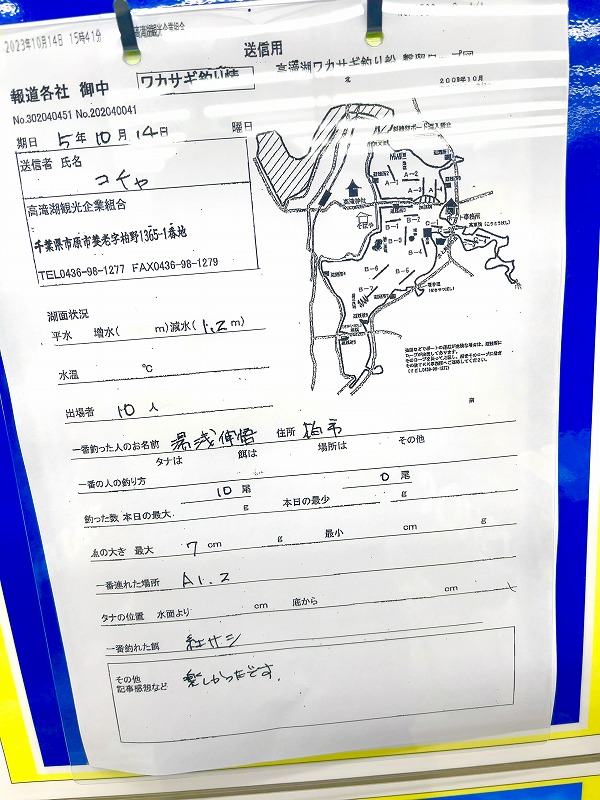 2023年10月14日 15時41分
高滝湖観光企業組合
送信用
報道各社 御中
ワカサギ釣り情
高滝湖ワカサギ釣り船
No.302040451 No.202040041
期日 5年10月14日 曜日
送信者 氏名
コイヤ
高滝湖観光企業組合
千葉県市原市養老字柏野1365-1番地
TEL0436-98-1277 FAX0436-98-1279
北
2009年10月
高滝神社
A-1
A-2
A-3
A-4
B-4
B-5
B-6
B-7
C-1
湖面状況
平水 増水( m)減水( 1.2m)
水温 ℃
出場者 10 人
一番釣った人のお名前 湯浅伸悟 住所 柏市
タナは 餌は 場所は その他
一番の人の釣り方
釣った数 本日の最大 10 尾 g 本日の最少 0 尾 g
魚の大き 最大 7 cm g 最小 cm g
一番連れた場所 A1.2
タナの位置 水面より cm 底から cm
一番釣れた餌 紅サシ
その他
記事感想など 楽しかったです。